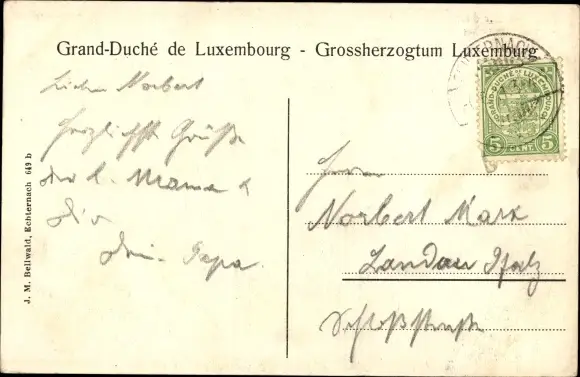 Grand-Duché de Luxembourg - Grossherzogtum Luxemburg
Lieber Norbert
herzlichste Grüße
der l. Mama &
Dir
Dein Papa.
Herrn
Norbert Marx
Landau Pfalz
Schloßstraße
GRAND-DUCHÉ DE LUXEMBOURG
5 CENT. 5
ECHTERNACH
J. M. Bellwald, Echternach 649 b